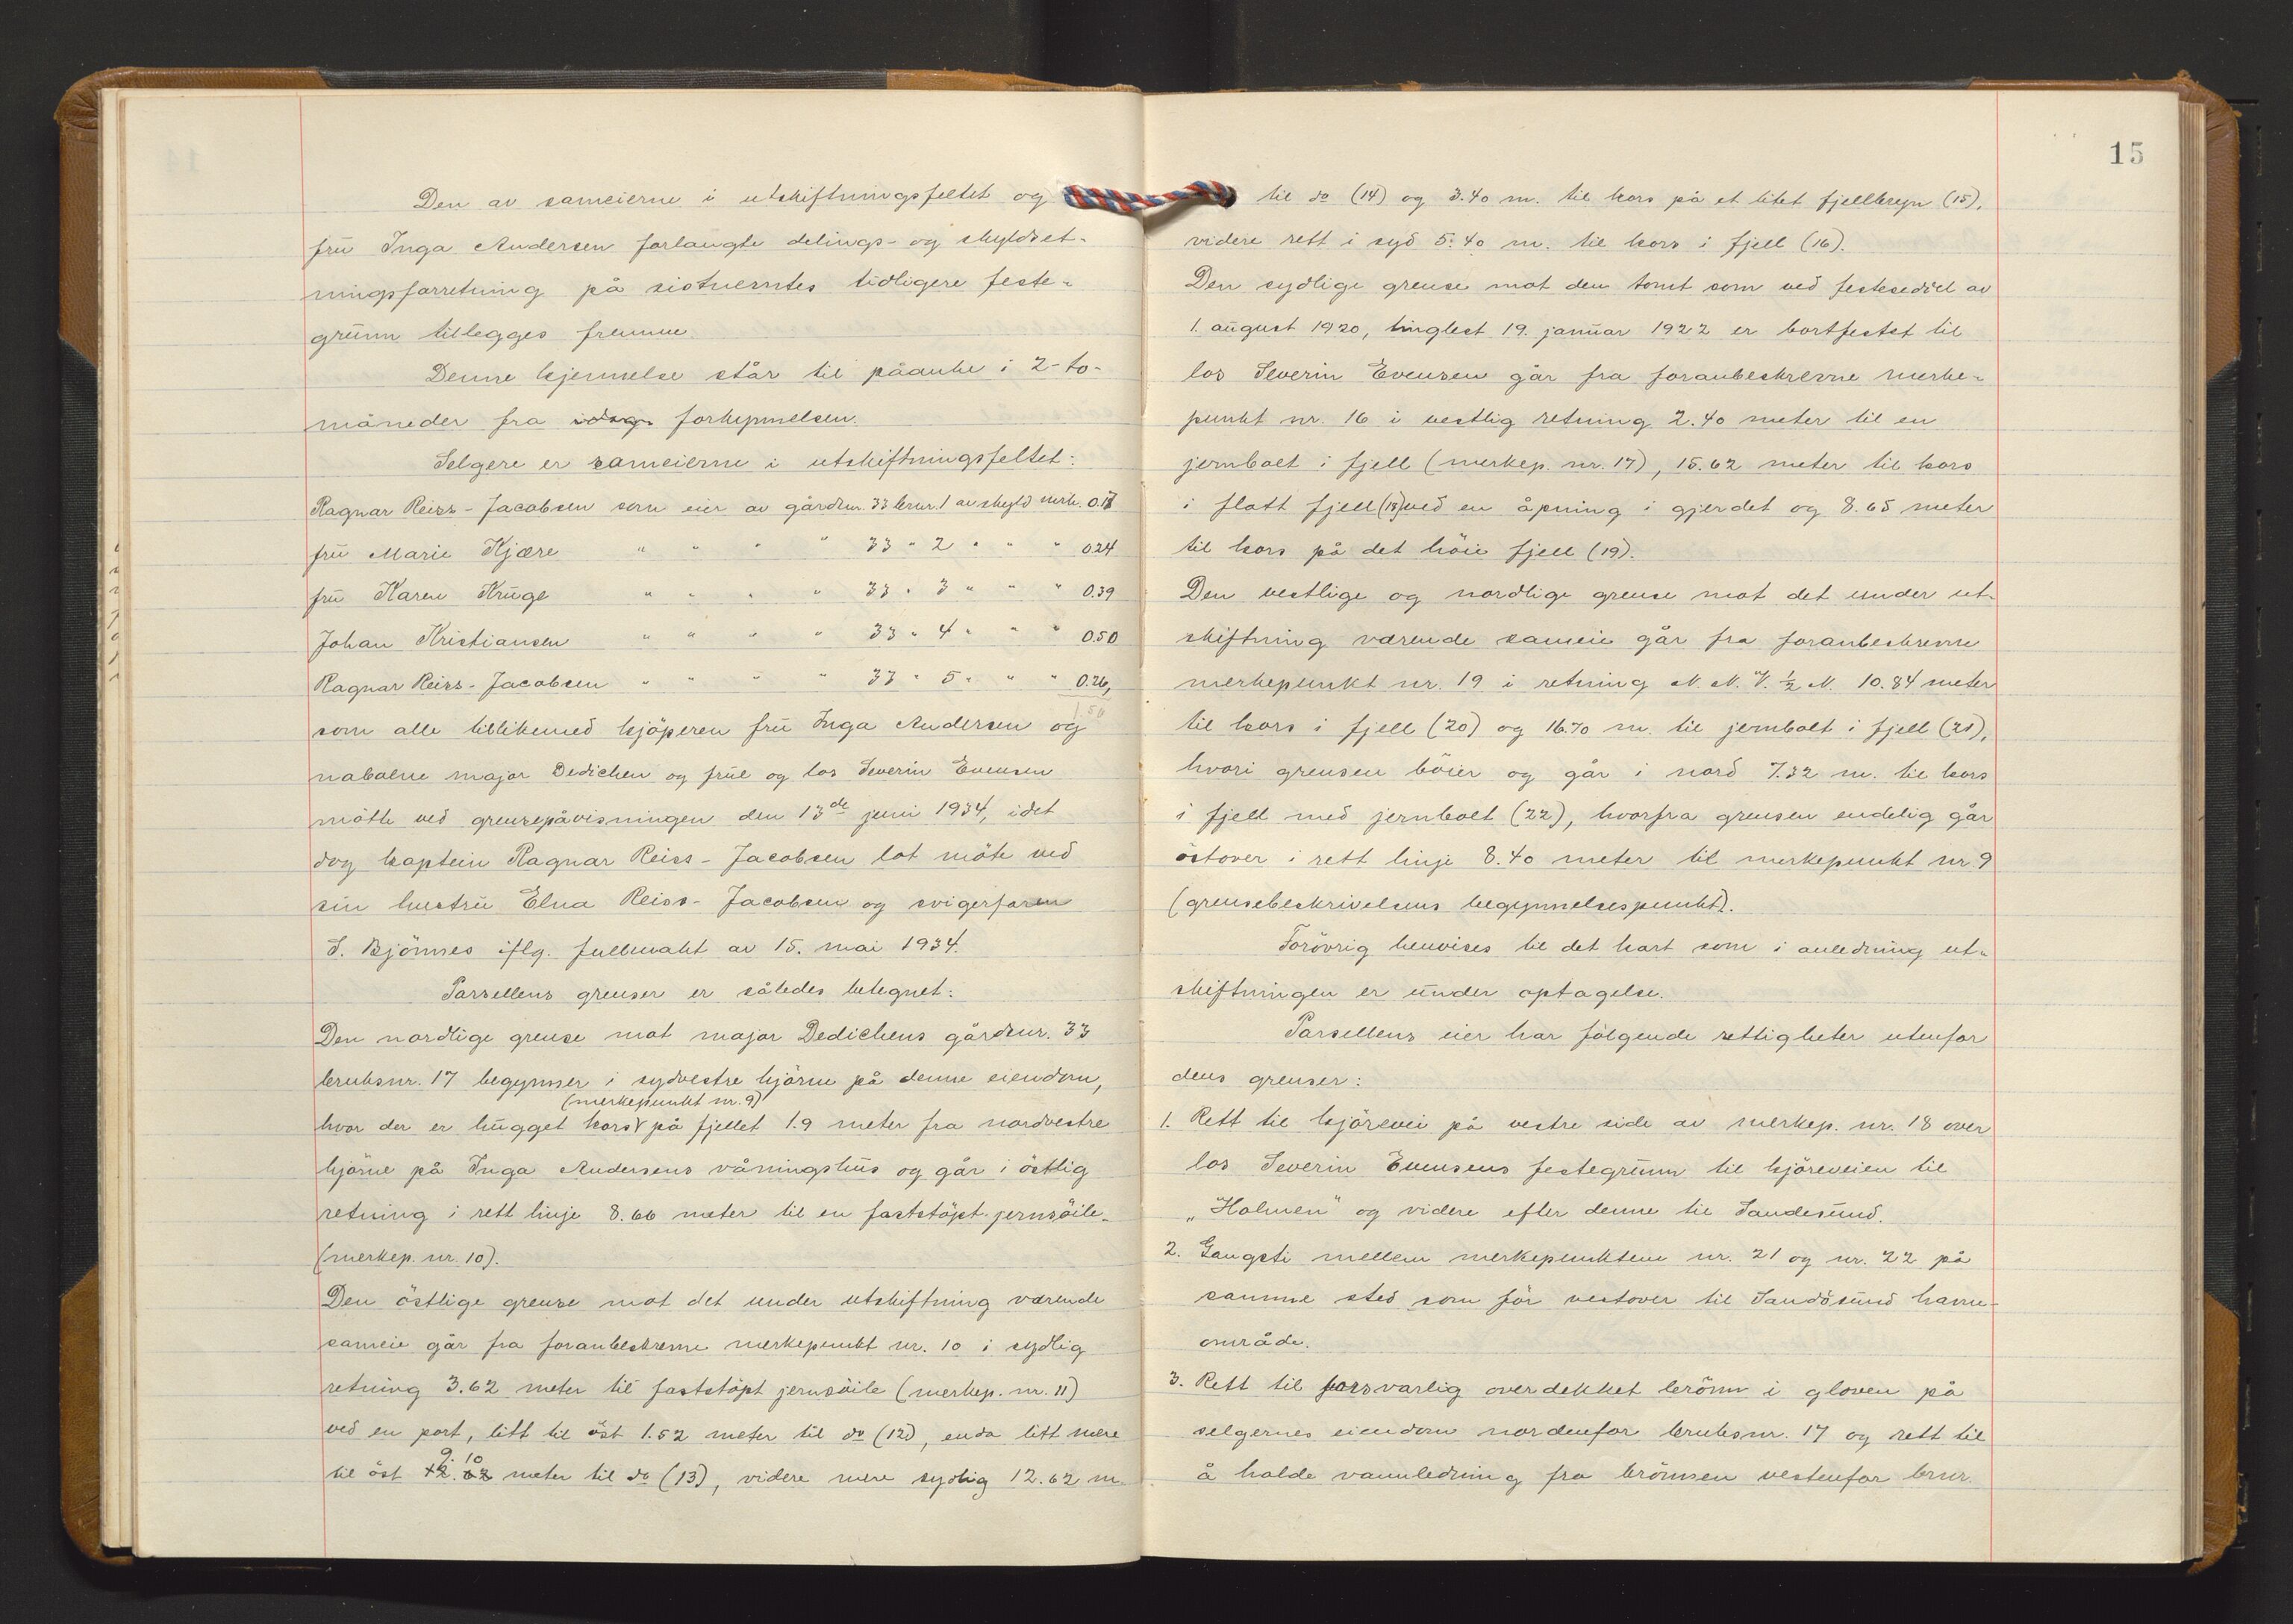 Den av sameierne i utskiftningsfeltet og
frü Inga Andersen forlangte delings- og skyldset-
ningsforretning på sistnevntes tidligere feste-
grünn tillegges fremme.
Denne kjennelse står til påanke i 2-to-
måneder fra idag forkynnelsen.
Selgere er sameierne i utskiftningsfeltet:
Ragnar Reiss-Jacobsen som eier av gårdsnr. 33 brnr. 1 av skyld mrk. 0.17
frü Marie Kjære " " " " 33 " 2 " " " 0.24
frü Karen Krüge " " " " 33 " 3 " " " 0.39
Johan Kristiansen " " " " 33 " 4 " " " 0.50
Ragnar Reiss-Jacobsen " " " " 33 " 5 " " " 0.26,
som alle tillikemed kjöperen frü Inga Andersen og
naboene major Dedichen og früe og los Severin Evensen
mötte ved grensepåvisningen den 13de juni 1934, idet
dog kaptein Ragnar Reiss-Jacobsen lot möte ved
sin hustrü Elna Reiss-Jacobsen og svigerfaren
S. Bjönnes iflg. fullmakt av 15. mai 1934.
Parsellens grenser er således betegnet:
Den nordlige grense mot major Dedichens gårdsnr. 33
bruksnr. 17 begynner i sydvestre hjörne på denne eiendom,
(merkepunkt nr. 9)
hvor der er hügget kors på fjellet 1.9 meter fra nordvestre
hjörne på Inga Andersens våningshüs og går i östlig
retning i rett linje 8.66 meter til en faststöpt jernsöile
(merkep. nr. 10).
Den östlige grense mot det under utskiftning værende
sameie går fra foranbeskrevne merkepunkt nr. 10 i sydlig
retning 3.62 meter til faststöpt jernsöile (merkep. nr. 11)
ved en port, litt til öst 1.52 meter til do (12), enda litt mere
9.10
til öst 12.62 meter til do (13), videre mere sydlig 12.62 m.
15
til do (14) og 3.40 m. til kors på et litet fjellbryn (15),
videre rett i syd 5.40 m. til kors i fjell (16).
Den sydlige grense mot den tomt som ved festeseddel av
1. august 1920, tinglest 19. januar 1922 er bortfestet til
los Severin Evensen går fra foranbeskrevne merke-
punkt nr. 16 i vestlig retning 2.40 meter til en
jernbolt i fjell (merkep. nr. 17), 15.62 meter til kors
i flatt fjell (18) ved en åpning i gjerdet og 8.65 meter
til kors på det höie fjell (19).
Den vestlige og nordlige grense mot det under ut-
skiftning værende sameie går fra foranbeskrevne
merkepunkt nr. 19 i retning N. N. V. ½ N. 10.84 meter
til kors i fjell (20) og 16.70 m. til jernbolt i fjell (21),
hvori grensen böier og går i nord 7.32 m. til kors
i fjell med jernbolt (22), hvorfra grensen endelig går
östover i rett linje 8.40 meter til merkepunkt nr. 9
(grensebeskrivelsens begynnelsespunkt).
Forövrig henvises til det kart som i anledning ut-
skiftningen er under optagelse.
Parsellens eier har fölgende rettigheter utenfor
dens grenser:
1. Rett til kjörevei på vestre side av merkep. nr. 18 over
los Severin Evensens festegrünn til kjöreveien til
"Holmen" og videre efter denne til Sandesünd.
2. Gangsti mellem merkepunktene nr. 21 og nr. 22 på
samme sted som för vestover til Sandösünd havne-
område.
3. Rett til forsvarlig overdekket brönn i gloven på
selgernes eiendom nordenfor bruksnr. 17 og rett til
å holde vannledning fra brönnen vestenfor brnr.